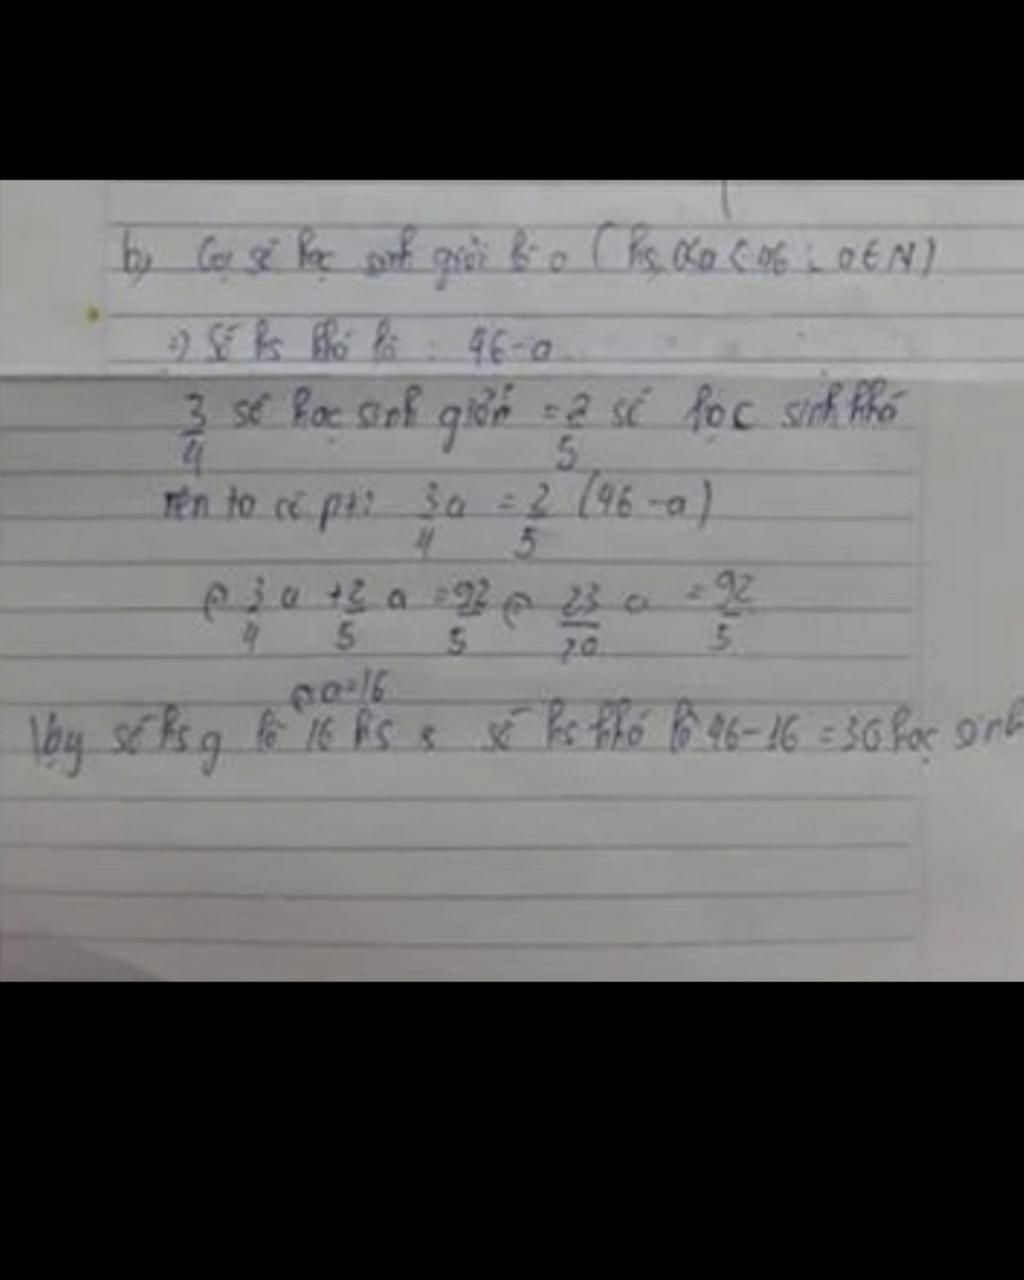 b, Gọi số học sinh giỏi là a (hs, 0<a<46; a∈N)
=> Số hs khá là : 46-a
3/4 số học sinh giỏi = 2/5 số học sinh khá
nên ta có pt: 3/4 a = 2/5 (46-a)
⇔ 3/4 a + 2/5 a = 92/5 ⇔ 23/20 a = 92/5
⇔ a=16
Vậy số hs g là 16 hs số hs khá là 46-16=30 học sinh